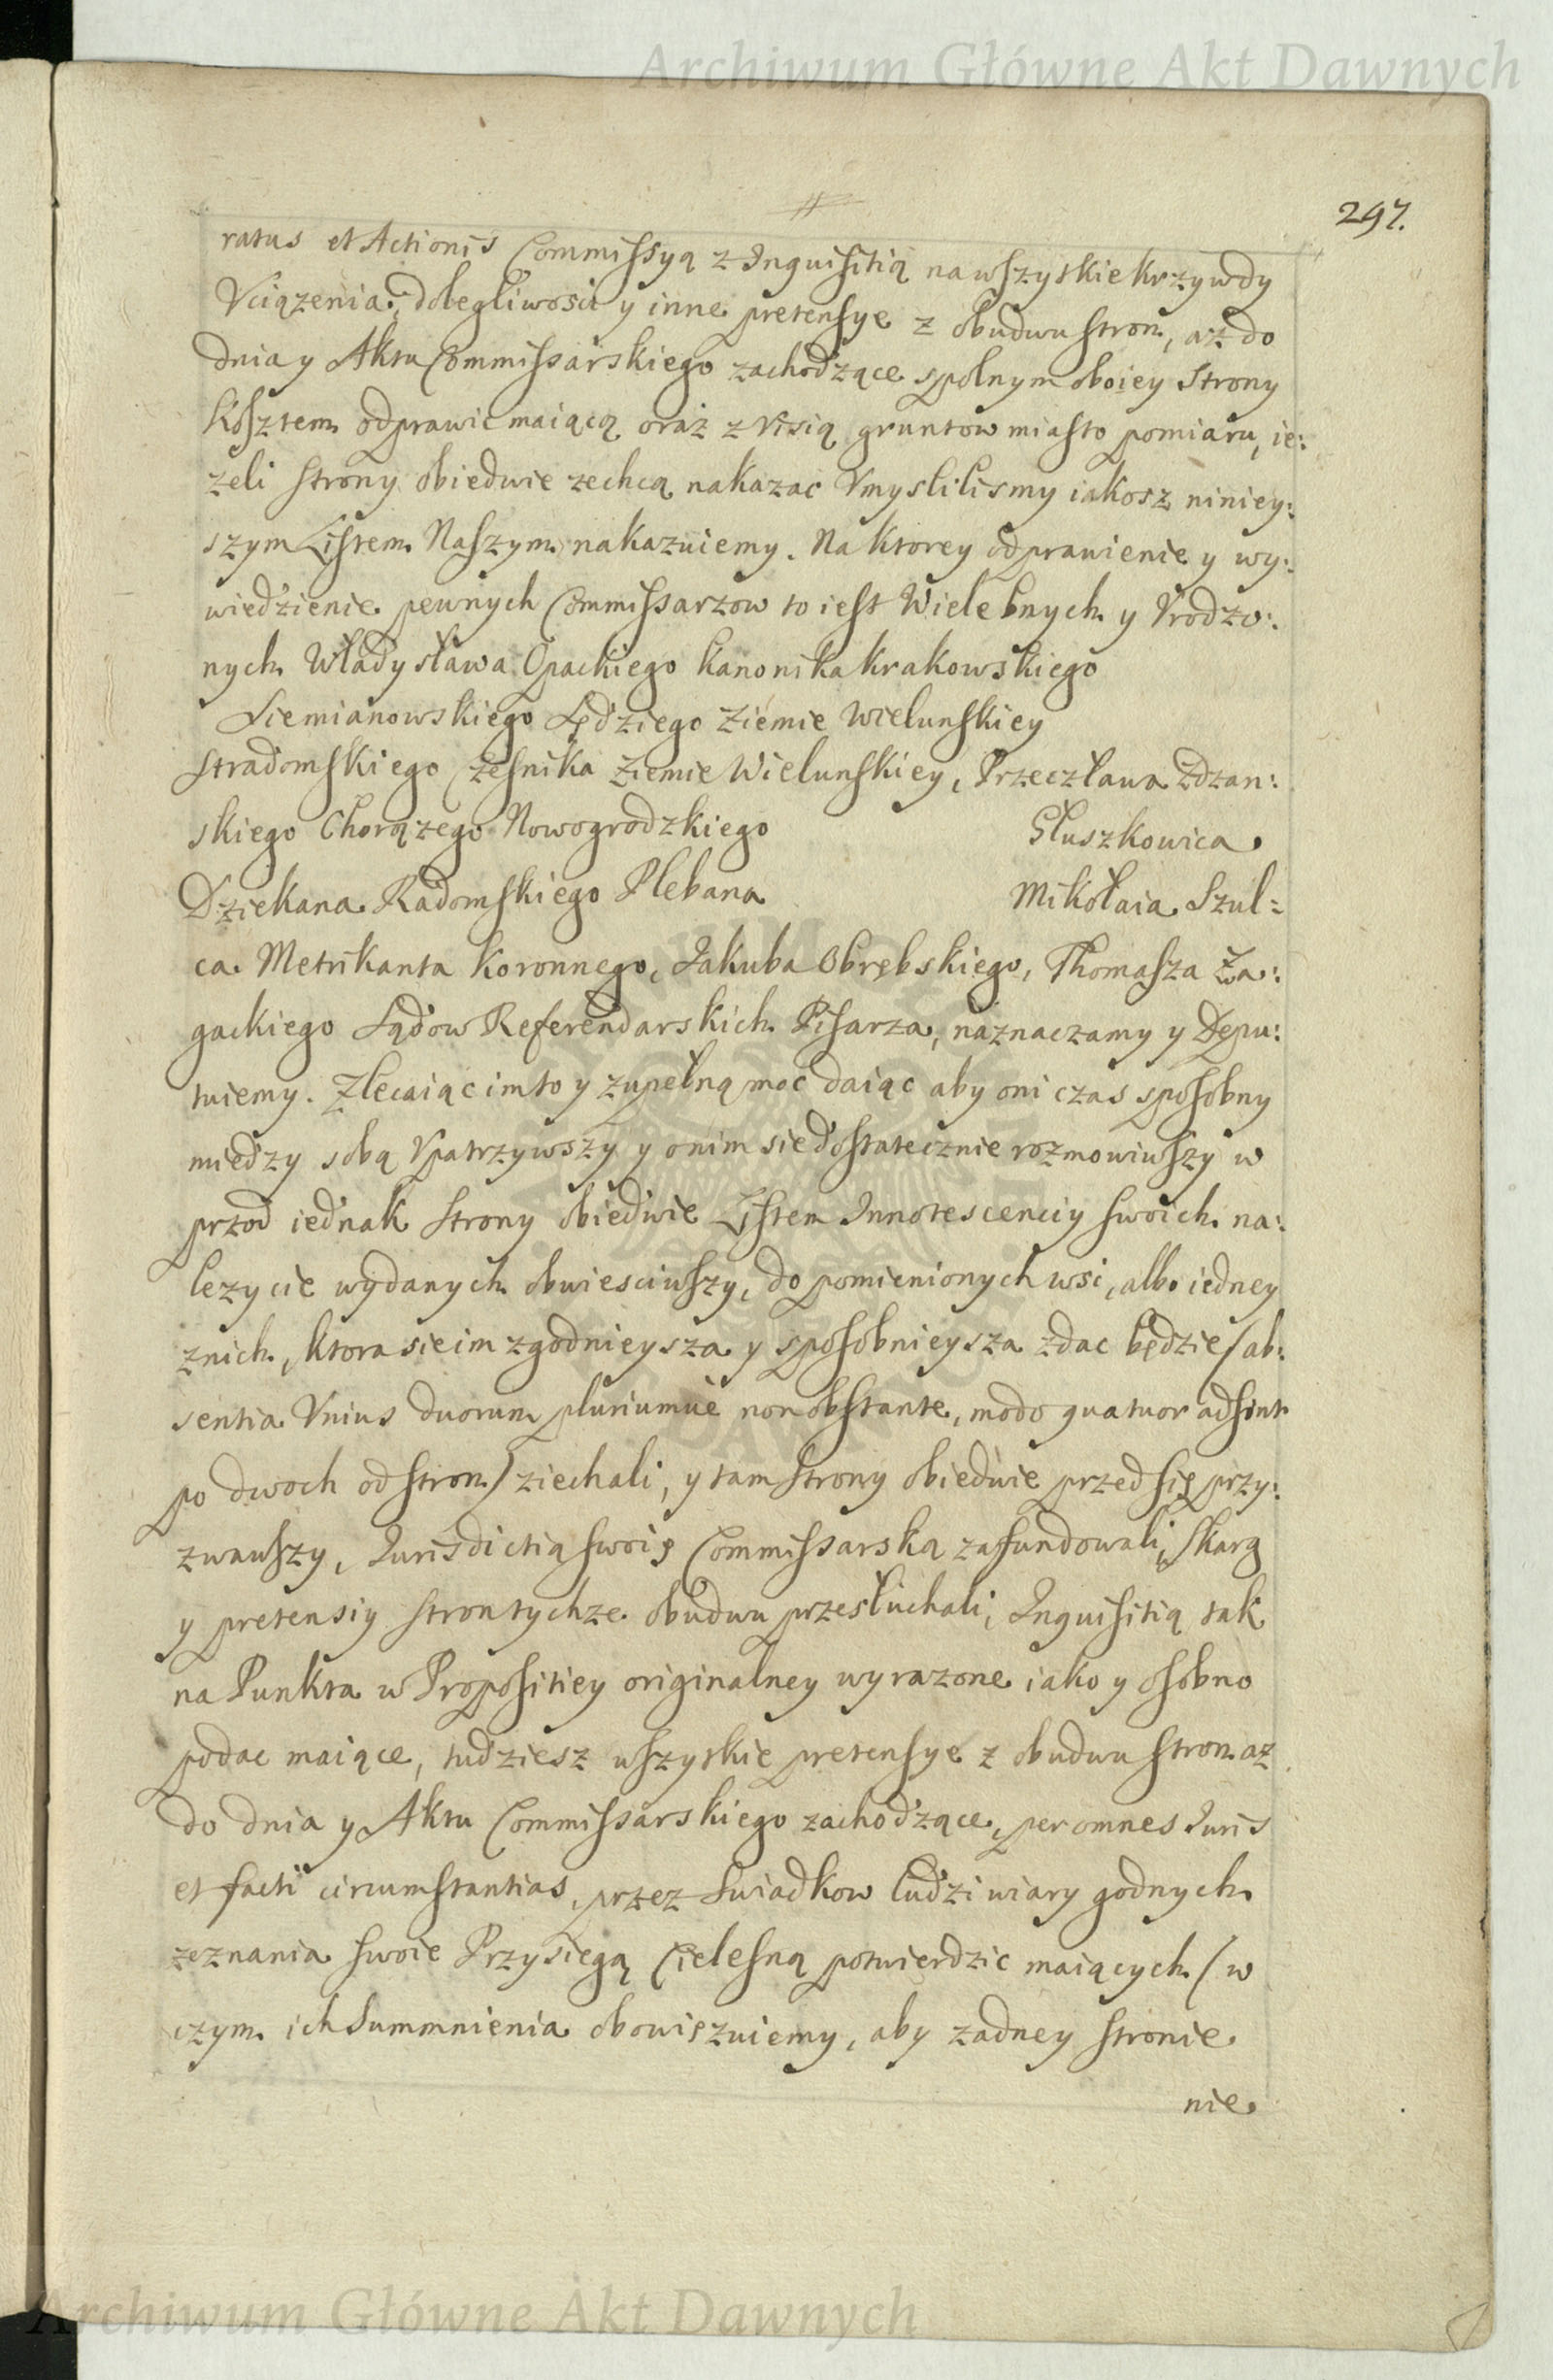 Archiwum Główne Akt Dawnych
297.
ratus et Actionis Commissyą z Inquisitią na wszystkie krzywdy
Vciązenia, dolegliwosci y inne pretensye z obudwu stron, aż do
dnia y Aktu Commissarskiego zachodzące spolnym oboiey strony
kosztem odprawic maiącą oraz z visią gruntow miasto pomiaru, ie:
zeli strony obiedwie zechcą nakazac Vmyslilismy iakosz niniey:
szym Listem Naszym nakazuiemy. Na ktorey odprawienie y wy:
wiedzienie pewnych Commissarzow to iest Wielebnych y Vrodzo:
nych Władysława Opackiego Kanonika Krakowskiego
Siemianowskiego Sędziego Ziemie Wielunskiey
Stradomskiego Czesnika Ziemie Wielunskiey, Przecława Zdzan:
skiego Chorązego Nowogrodzkiego Głuszkowica
Dziekana Radomskiego Plebana Mikołaia Szul=
ca Metrikanta Koronnego, Jakuba Obrębskiego, Thomasza Za:
gackiego Sądow Referendarskich Pisarza, naznaczamy y Depu:
tuiemy. Zlecaiąc im to y zupełną moc daiąc aby oni czas sposobny
miedzy sobą Vpatrzywszy y onim sie dostatecznie rozmowiwszy w
przod iednak strony obiedwie Listem Innotescenciy swoich na:
lezycie wydanych obwiesciwszy, do pomienionych wsi, albo iedney
znich, ktora sie im zgodnieysza y sposobnieysza zdac będzie (ab:
sentia Vnius duorum pluriumue non obstante, modo quatuor adsint
po dwoch od stron) ziechali, y tam strony obiedwie przed się przy:
zwawszy, Iurisdictią swoię Commissarską zafundowali, skarg
y pretensiy stron tychze obudwu przesłuchali, Inquisitią tak
na Punkta w Propositiey originalney wyrazone iako y osobno
podac maiące, tudziesz wszystkie pretensye z obudwu stron az
do dnia y Aktu Commissarskiego zachodzące, per omnes Iuris
et facti circumstantias, przez Swiadkow ludzi wiary godnych
zeznania swoie Przysiegą Cielesną potwierdzic maiących (w
czym ich Summnienia obowięzuiemy, aby zadney stronie
nie
Archiwum Główne Akt Dawnych